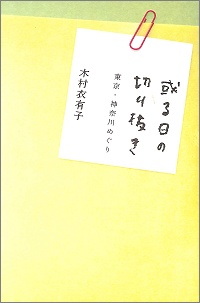 或る日の
切り抜き
東京・神奈川めぐり
木村衣有子